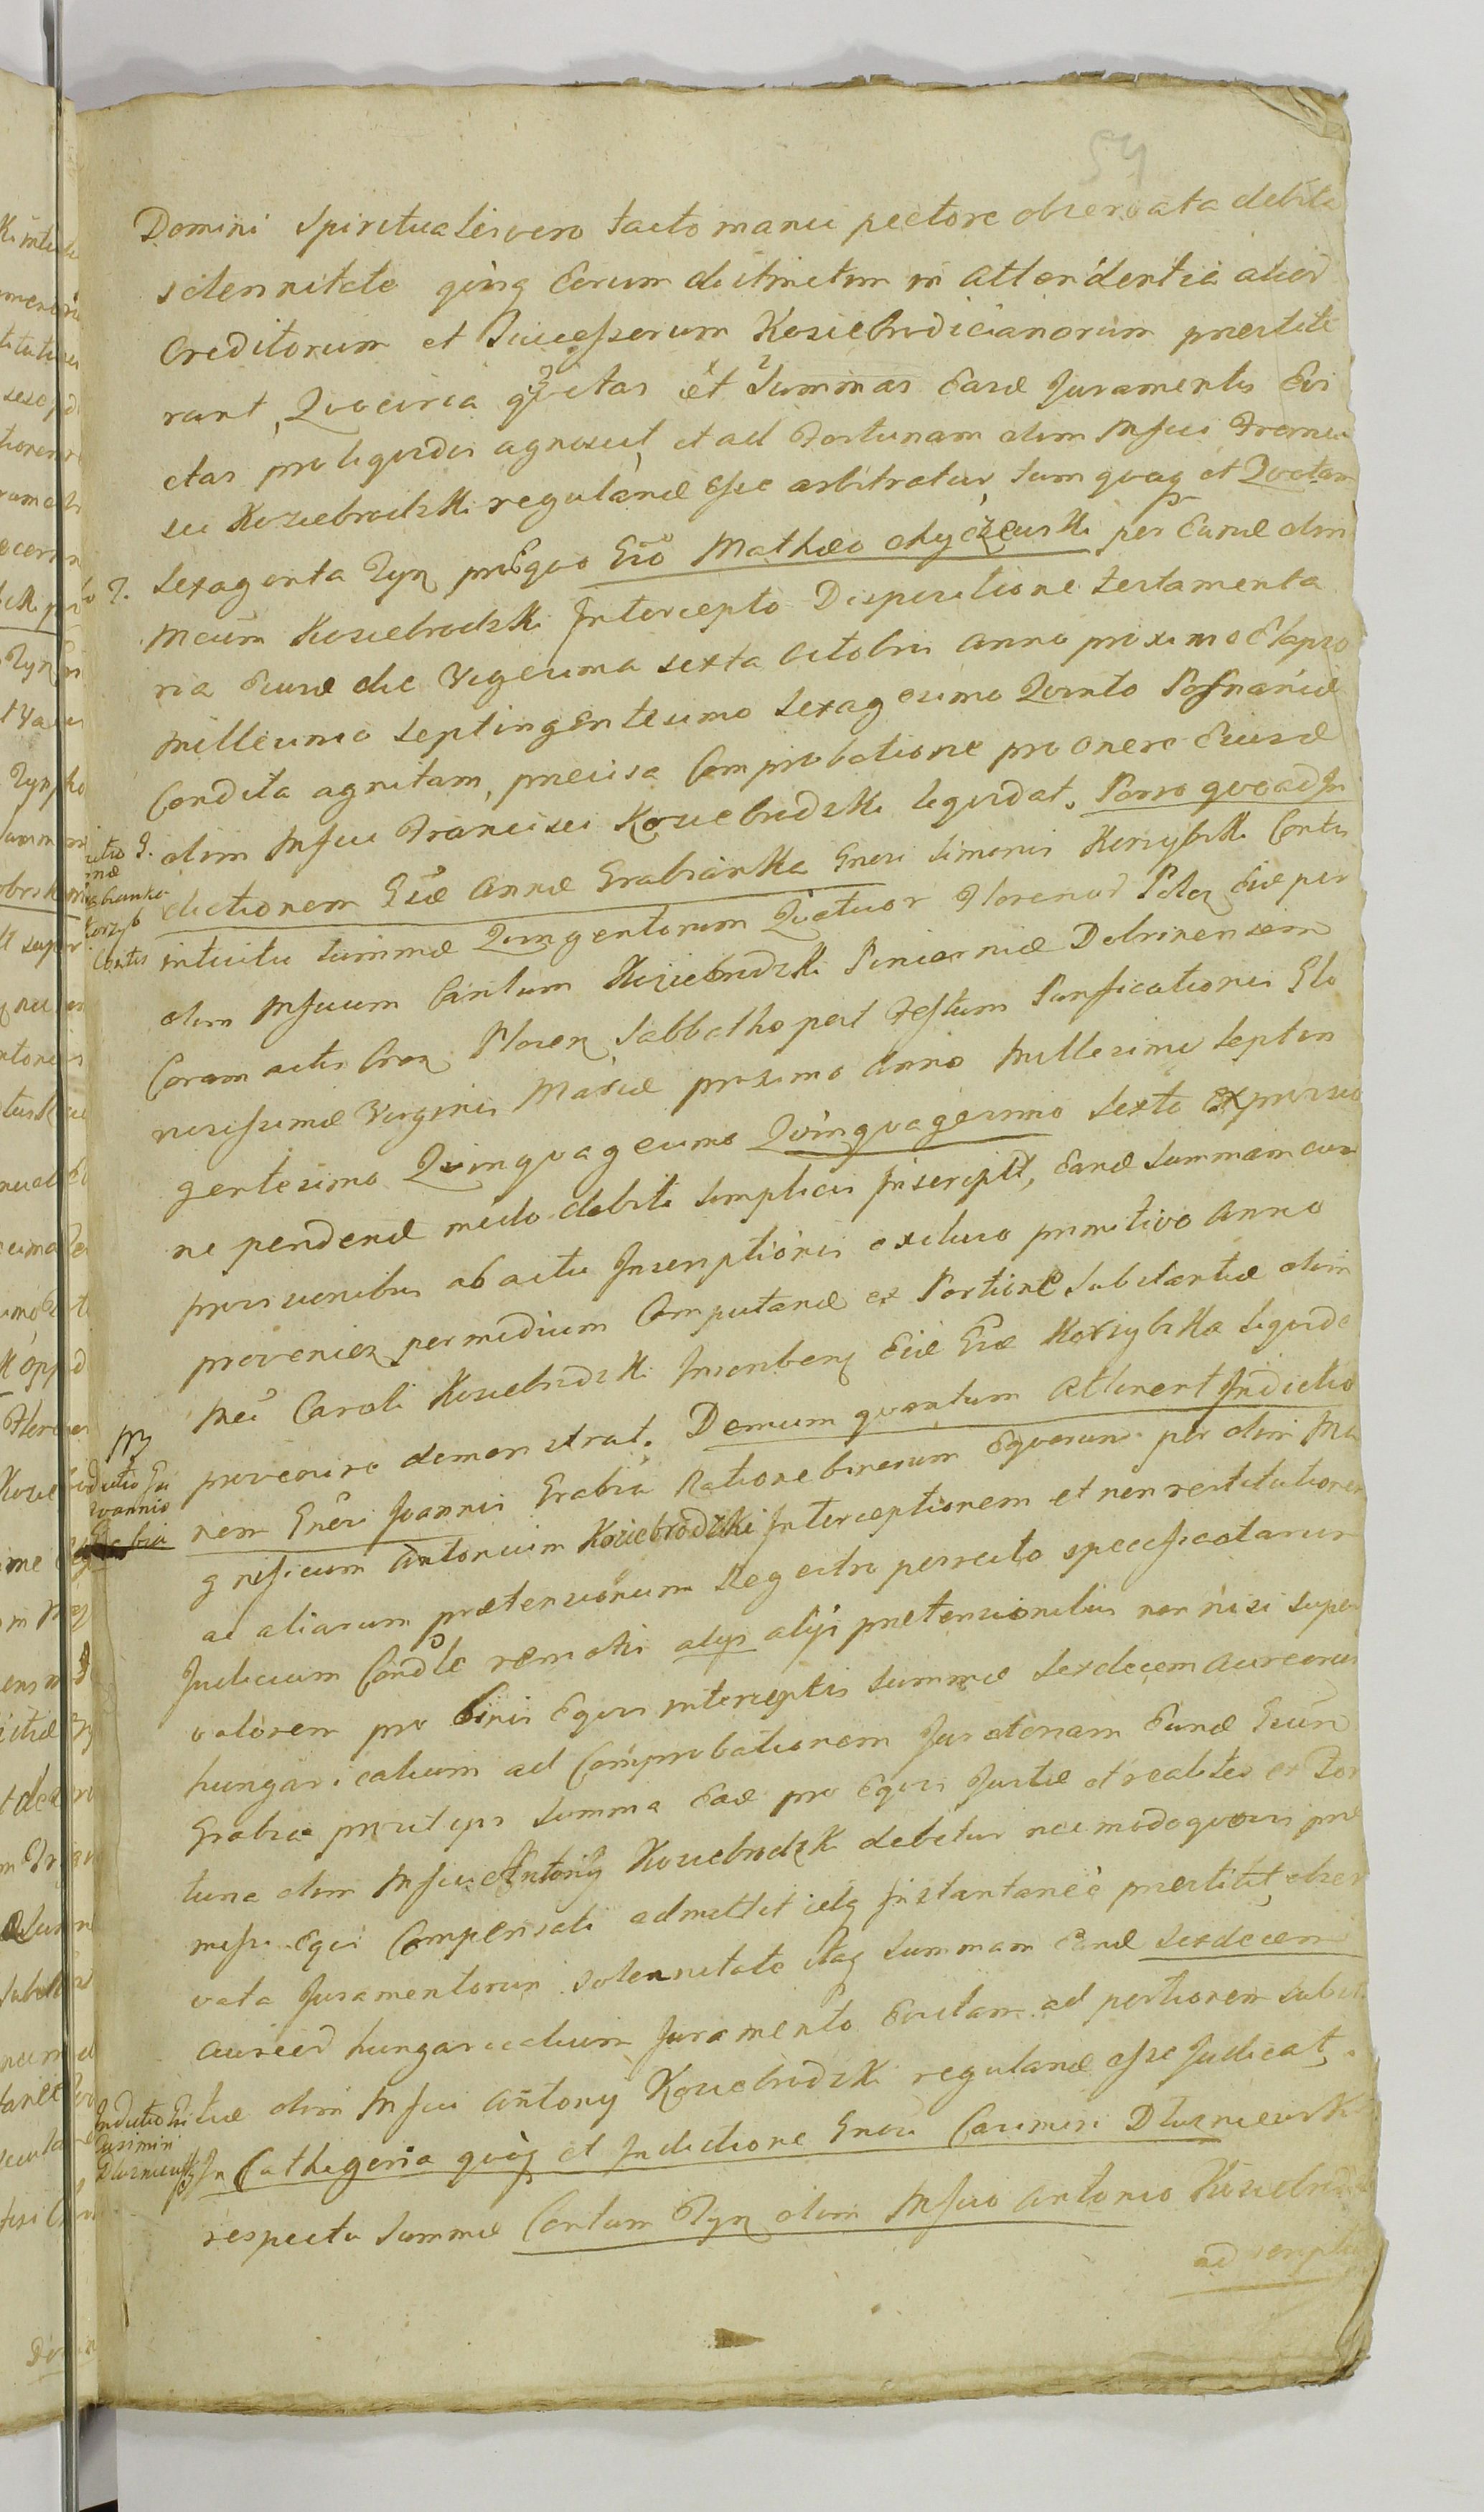 54
Domini Spirituales vero tacto manu pectore observata debita
solennitate quivis Eorum distinctim in attendentia alior
Creditorum et Successorum Koziebrodicianorum praestite
runt, Quocirca qvotas et Summas Easd Juramentis Evi
ctas pro liqvidis agnoscit, et ad Fortunam olim Mfici Franci
sci Koziebrodzki reguland Esse arbitratur, tum qvoq et Qvotam
Sexaginta Tyn pro Eqvo Gso Mathaeo Chyczewski per Eund olim
Mcum Koziebrodzki Intercepto Dispositione Testamenta
ria Eiusd die Vigesima sexta Octobris Anno proximo Elapso
Millesimo Septingentesimo Sexagesimo Qvinto Posnaniae
Condita agnitam, praecisa Comprobatione pro onere Eiusd
olim Mfici Francisci Koziebrodzki liqvidat. Porro qvoad In
dictionem Gsae Annae Grabianka Gnosi Simonis Korzybski Contis
intuitu Summae Qvingentorum Qvatuor Florenor Polon Eid per
olim Mficum Carolum Koziebrodzki Pincernid Dobrinensem
Coram actis Cron Plocen Sabbatho post Festum Purificationis Glo
riosissimae Virginis Mariae proximo Anno Millesimo Septin
gentesimo Qvinqvagesimo Qvinqvagesimo Sexto Ex provisio
ne pendend modo debiti Simplicis Inscriptt, Eand Summam cum
provisionibus ab actu Inscriptionis excluso primitivo Anno
provenien per medium Computand ex Portione Substantiae olim
Mci Caroli Koziebrodzki Incumben Eid Gsae Korzybska liqvide
provenire demonstrat. Demum qvantum attinent Indictio
nem Gnosi Joannis Grabia Ratione binorum Eqvorum per olim Ma
gnificum Antonium Koziebrodzki Interceptionem et non restitutionem
ac aliarum praetensionum Regestro porrecto specificatarum
Judicium Condle remotis alys alys praetensionibus non nisi super
valorem pro binis Eqvis interceptis Summae Sexdecem aureorum
hungaricalium ad Comprobationem Juratoriam Eund Gsum
Grabia
tunc olim Mfici Antony Koziebrodzki debetur nec modo qvovis prae
missi Eqvi Compensati admittit idq Instantanee praestitit, obser
vata Juramentorum solennitate itaq Summam Eand Sexdecem
Aureor hungaricalium Juramento Evictam ad portionem Substa
tiae olim Mfici Antony Koziebrodzki reguland esse Judicat.
In Cathegoria qvoq et Indictione Gnosi Casimiri Dluzniewski
respectu Summae Centum Tyn olim Mfico Antonio Koziebrodz
ad scriptu
Joannis
Grabia
Indictio Gsi
Casimiri
Dluzniewski